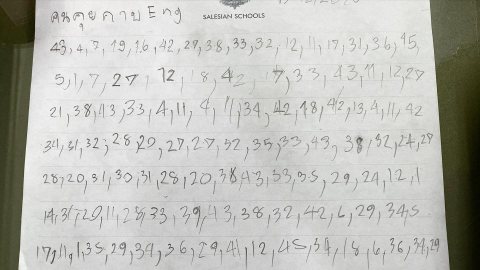 คนคุยคาบEng
SALESIAN SCHOOLS
43, 4, 7, 19, 16, 42, 27, 38, 33, 32, 12, 11, 17, 31, 36, 45,
5, 1, 7, 27, 12, 18, 42, 17, 33, 43, 11, 12, 27
21, 38, 43, 33, 4, 11, 4, 11, 34, 42, 18, 42, 13, 4, 11, 42
34, 31, 32, 28, 20, 27, 27, 32, 35, 33, 43, 38, 32, 24, 28
28, 20, 31, 30, 31, 28, 20, 38, 43, 33, 35, 29, 24, 12, 1
14, 31, 20, 11, 28, 33, 39, 43, 38, 32, 42, 6, 29, 34, 5
17, 11, 1, 35, 29, 34, 36, 29, 41, 12, 45, 34, 18, 6, 36, 34, 29